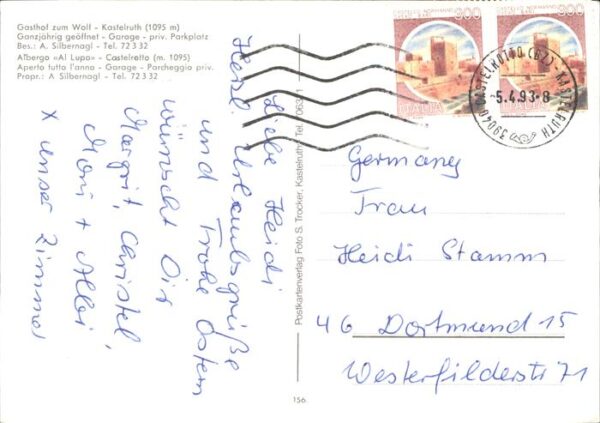 Gasthof zum Wolf - Kastelruth (1095 m)
Ganzjährig geöffnet - Garage - priv. Parkplatz
Bes.: A. Silbernagl - Tel. 72332
Albergo «Al Lupo» - Castelrotto (m. 1095)
Aperto tutta l'anno - Garage - Parcheggio priv.
Propr.: A Silbernagl - Tel. 72332
Liebe Heidi
Herzl. Urlaubsgrüße
und Frohe Ostern
wünscht Dir
Margrit, Christel,
Moni + Albi
x unser Zimmer
Postkartenverlag Foto S. Trocker, Kastelruth - Tel.
156
800
800
ITALIA
ITALIA
39040 CASTELROTTO (BZ) - KASTELRUTH
-5.4.93-8
Germany
Frau
Heidi Stamm
46 Dortmund 15
Westerfilderstr 71